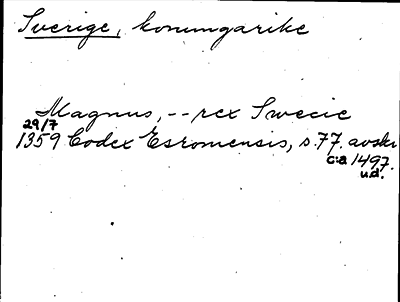 Sverige, konungarike
Magnus, -- rex Swecie
29/7
1359 Codex Esromensis, s. 77. avskr
c:a 1497.
u.d.